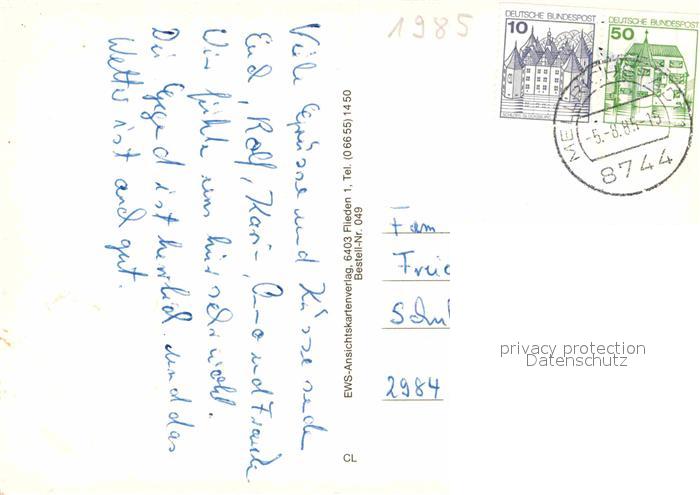 Viele Grüsse und Küsse sende
Euch, Rolf, Karin, Oma und
Wir fühle uns hier sehr wohl.
Die Gegend ist herrlich. und das
Wetter ist auch gut.
EWS-Ansichtskartenverlag, 6403 Flieden 1, Tel. (0 66 55) 14 50
Bestell-Nr. 049
CL
1985
DEUTSCHE BUNDESPOST
10
DEUTSCHE BUNDESPOST
50
-5.-8.85-15
8744
Fam
Freic
Schu
2984
privacy protection
Datenschutz